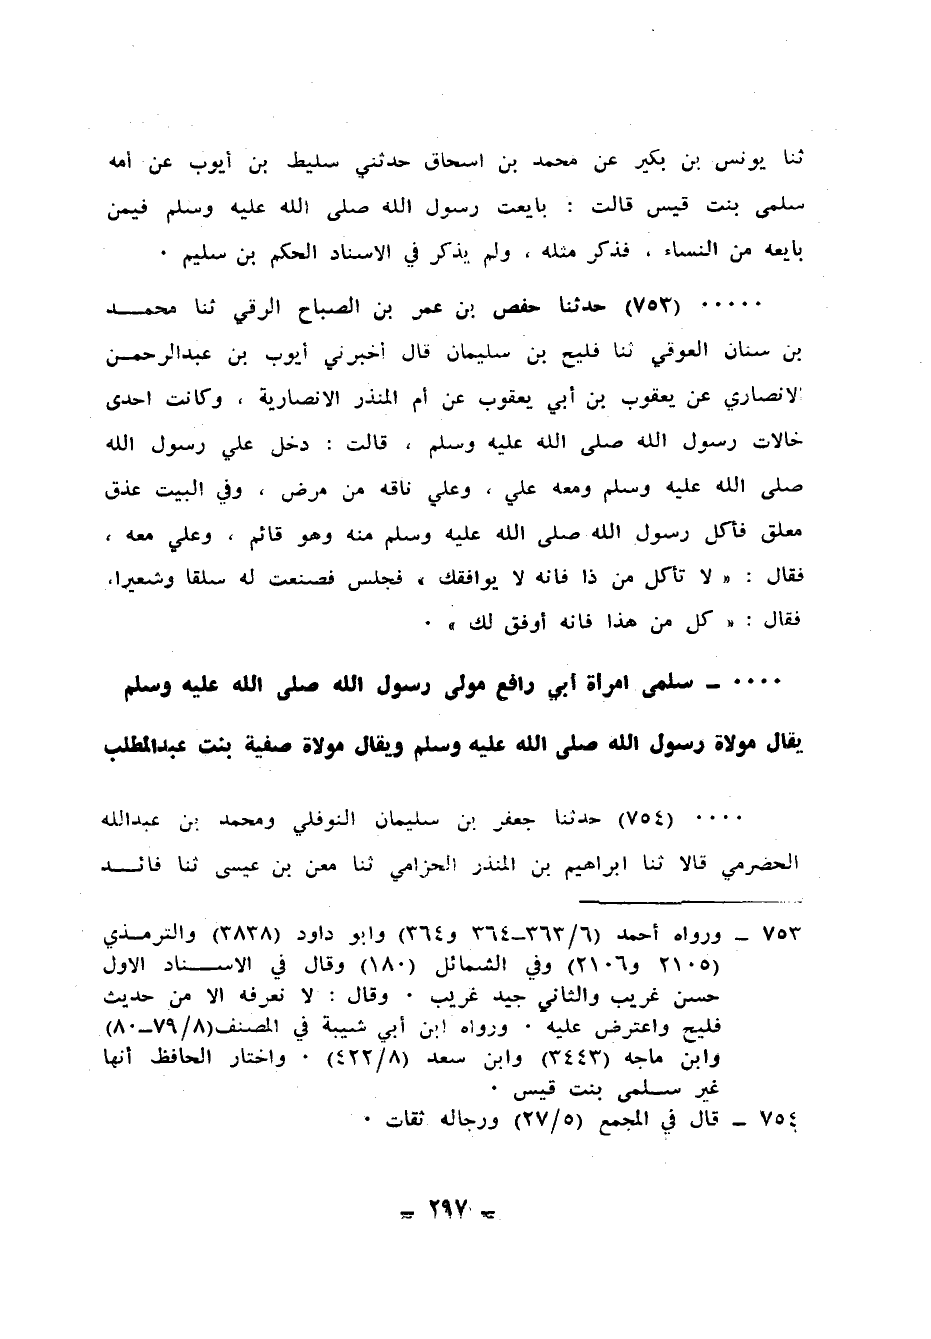 ثنا يونس بن بكير عن محمد بن اسحاق حدثني سليط بن أيوب عن أمه
سلمى بنت قيس قالت : بايعت رسول الله صلى الله عليه وسلم فيمن
بايعه من النساء ، فذكر مثله ، ولم يذكر في الاسناد الحكم بن سليم ٠
٠٠٠٠٠ (٧٥٣) حدثنا حفص بن عمر بن الصباح الرقي ثنا محمــد
بن سنان العوقي ثنا فليح بن سليمان قال أخبرني أيوب بن عبدالرحمــن
الانصاري عن يعقوب بن أبي يعقوب عن أم المنذر الانصارية ، وكانت احدى
خالات رسول الله صلى الله عليه وسلم ، قالت : دخل علي رسول الله
صلى الله عليه وسلم ومعه علي ، وعلي ناقه من مرض ، وفي البيت عذق
معلق فأكل رسول الله صلى الله عليه وسلم منه وهو قائم ، وعلي معه ،
فقال : « لا تأكل من ذا فانه لا يوافقك » فجلس فصنعت له سلقا وشعيرا،
فقال : « كل من هذا فانه أوفق لك » ٠
٠٠٠٠ ـ سلمى امرأة أبي رافع مولى رسول الله صلى الله عليه وسلم
يقال مولاة رسول الله صلى الله عليه وسلم ويقال مولاة صفية بنت عبدالمطلب
٠٠٠٠ (٧٥٤) حدثنا جعفر بن سليمان النوفلي ومحمد بن عبدالله
الحضرمي قالا ثنا ابراهيم بن المنذر الحزامي ثنا معن بن عيسى ثنا فائــد
٧٥٣ ـ ورواه أحمد (٦/٣٦٣ـ٣٦٤ و٣٦٤) وابو داود (٣٨٣٨) والترمـذي
(٢١٠٥ و٢١٠٦) وفي الشمائل (١٨٠) وقال في الاســـناد الاول
حسن غريب والثاني جيد غريب ٠ وقال : لا نعرفه الا من حديث
فليح واعترض عليه ٠ ورواه ابن أبي شيبة في المصنف(٨/٧٩ـ٨٠)
وابن ماجه (٣٤٤٣) وابن سعد (٨/٤٢٢) ٠ واختار الحافظ أنها
غير ســلمى بنت قيس ٠
٧٥٤ ـ قال في المجمع (٥/٢٧) ورجاله ثقات ٠
ـ ٢٩٧ ـ